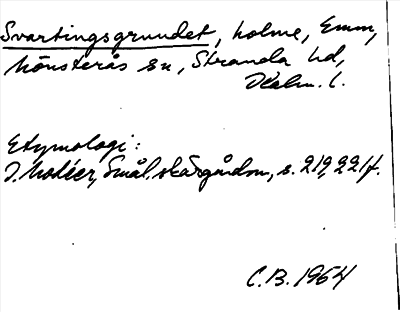 Svartingsgrundet, holme, Emm,
Mönsterås sn, Stranda hd,
Kalm. l.
Etymologi:
I. Modéer, Smål. skärgårdsn, s. 219, 221f.
C.B. 1964